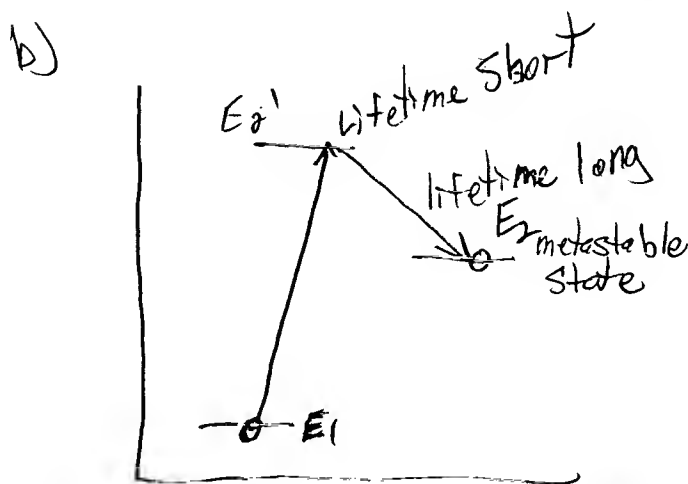 b)
E₂' Lifetime short
lifetime long
E₂ metastable
state
E₁